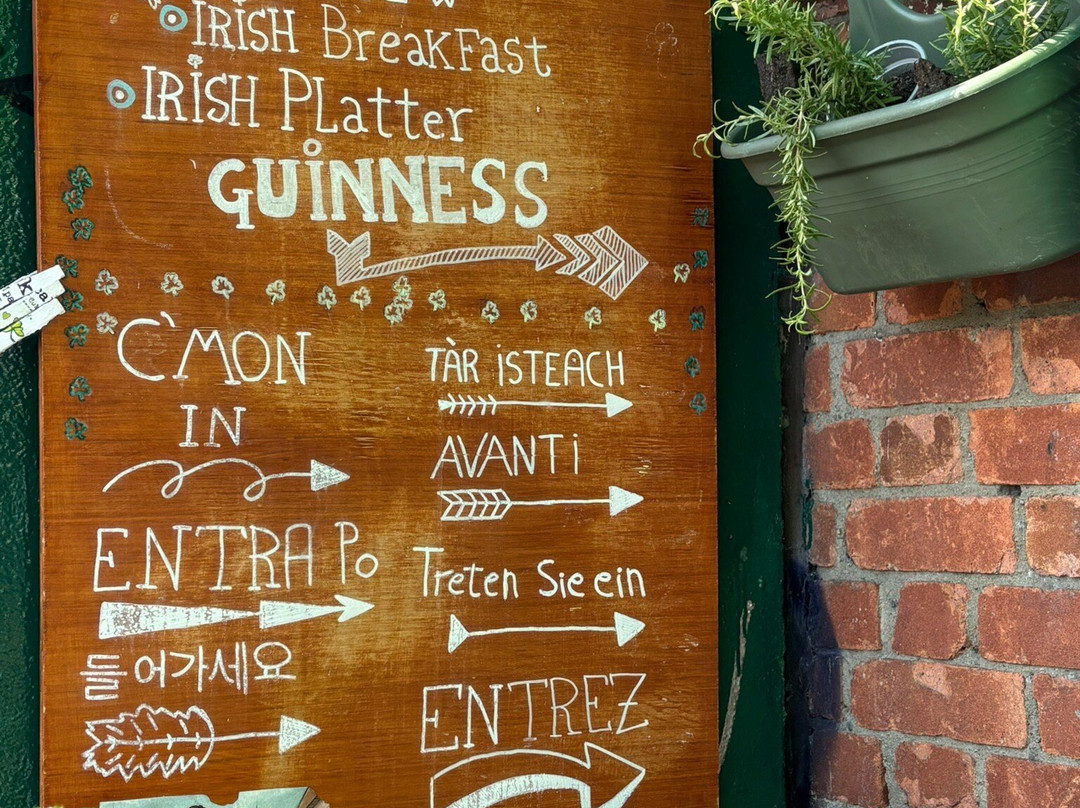 IRISH BreakFast
IRISH PLatter
GUINNESS
C'MON
IN
ENTRA Po
들어가세요
TÀR isTEACH
AVANTi
Treten Sie ein
ENTREZ